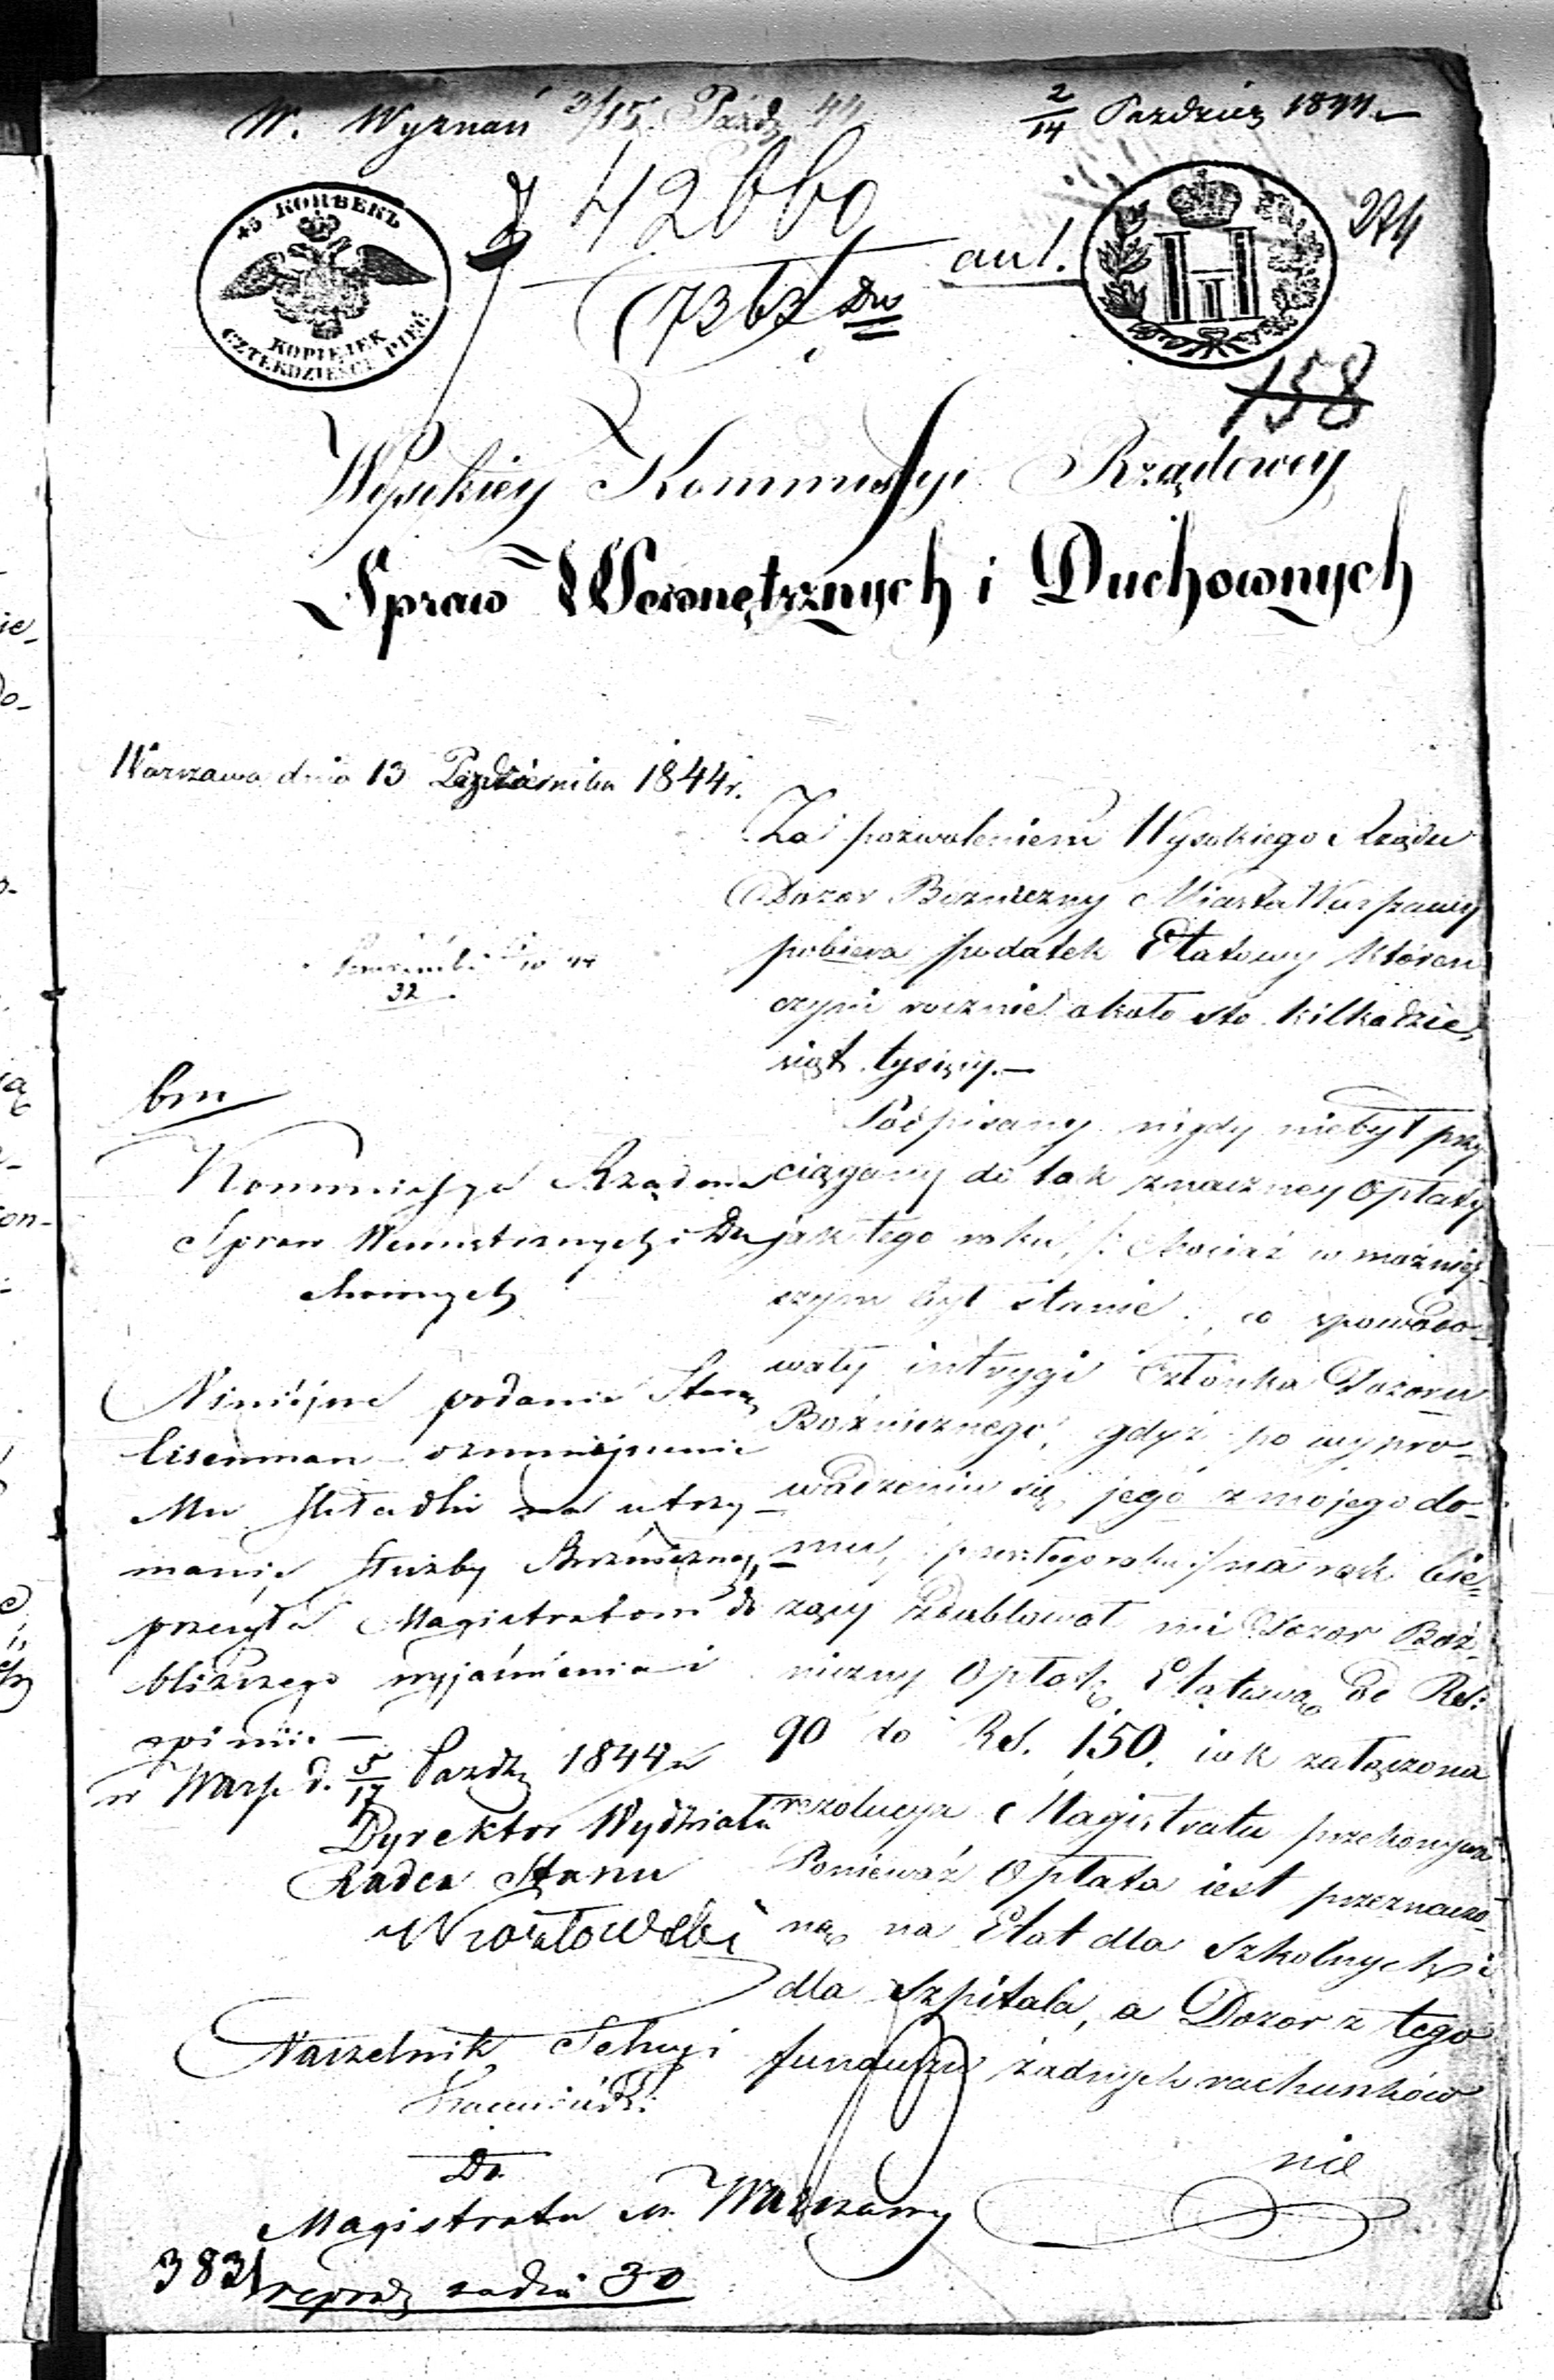 W. Wyznań 3/15 Paźdz 44
2/14 Pazdzier 1844
45 КОПѢЕКЪ
KOPIEJEK
CZTERDZIEŚCI PIĘĆ
42660
7363
aul.
HI
274
158
Wysokiey Kommissyi Rządowey
Spraw Wewnętrznych i Duchownych
Warszawa dnia 13 Października 1844 r.
Za pozwoleniem Wysokiego Rządu
Dozor Bożniczny Miasta Warszawy
pobiera podatek Etatowy któren
czyni rocznie około sto kilkadzie,
siąt tysięcy.—
Podpisany nigdy niebył przy
ciągany do tak znaczney Opłaty
jak tego roku, /: chociaż w możniey-
szym był stanie, co spowodo-
wały intrygi Członka Dozoru
Bożnicznego, gdyż po wypro-
wadzeniu się jego z mojego do-
mu, przeszłego roku na rok bie-
żący zdublował mi Dozor Boż-
niczny Opłatę Etatową od Rs:
90 do Rs. 150. iak załączona
rezolucya Magistratu przekonywa
Ponieważ Opłata iest przeznaczo-
ną na Etat dla Szkolnych i
dla Szpitala, a Dozor z tego
funduszu żadnych rachunków
nie
32
bm
Kommissya Rządowa
Spraw Wewnętrznych i Du
chownych
Niniejsze podanie Staroz
Eisenman o zmniejszenie
Mu składki na utrzy-
manie służby Bożniczney,
przesyła Magistratowi do
bliższego wyjaśnienia i
opinii.—
w Warsz. d. 5/17 Pazdz 1844 r
Dyrektor Wydziału
Radca Stanu
Naczelnik Sekcyi
Do
Magistratu M. Warszawy
3831 zadzi 30